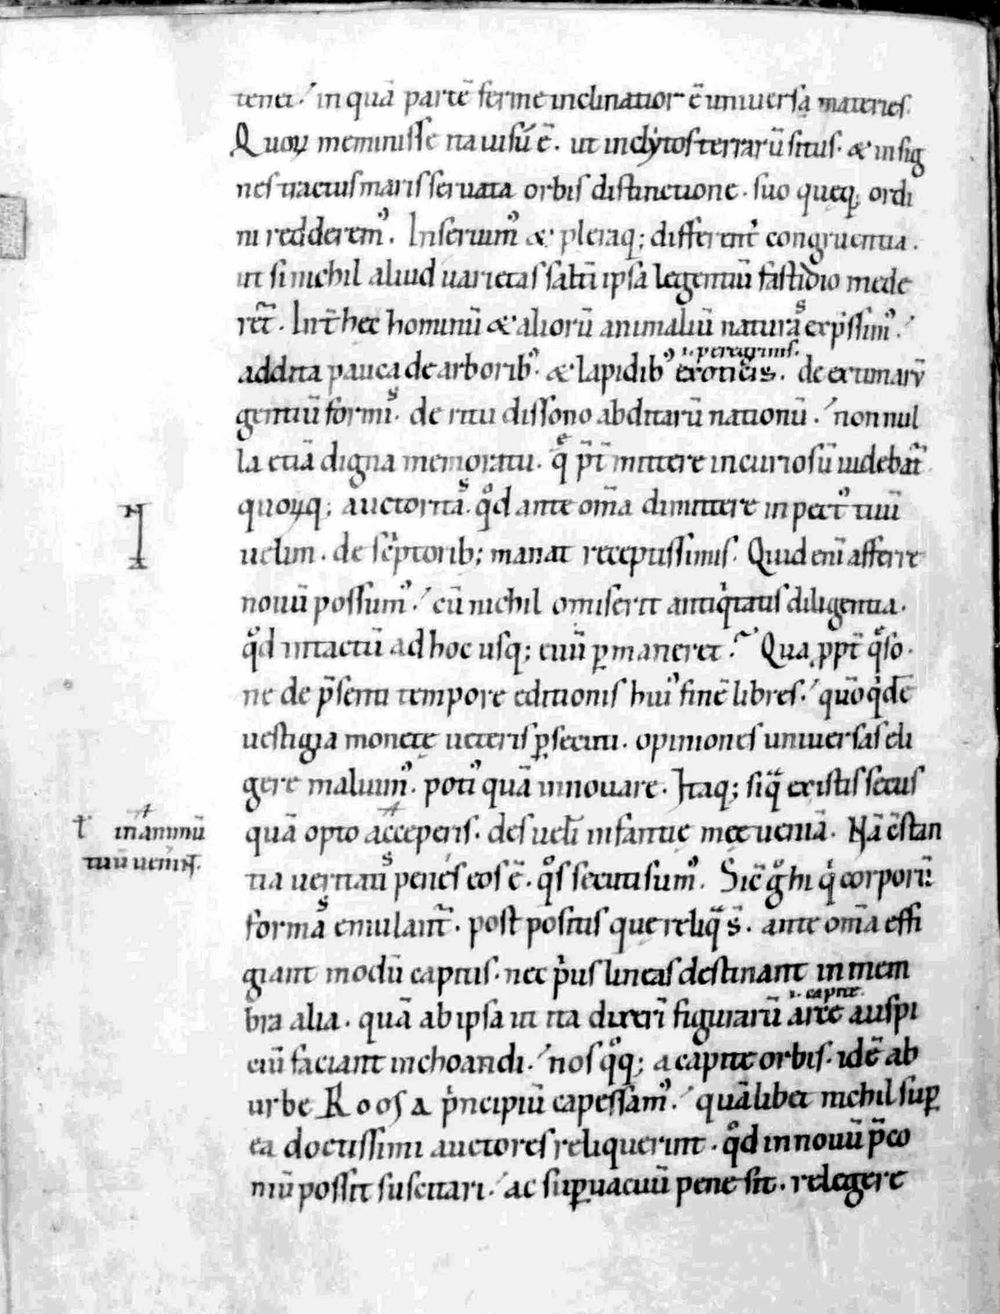 tenet. in quā partē ferme inclinatior ē universa materies.
Quoꝝ meminisse ita uisū ē. ut inclytos terrarū situs. & insig
nes tractus maris seruata orbis distinctione. suo queq; ordi
ni redderemꝰ. Inseruimꝰ & pleraq; differenter congruentia.
ut si nichil aliud uarietas saltē ipsa legentiū fastidio mede
ret̄. Int̄ hec hominū & aliorū animaliū naturas exp̄ssimꝰ.
i. peregrinis.
addita pauca de arboribꝰ. & lapidibꝰ exoticis. de extimarū
gentiū formis. de ritu dissono abditarū nationū. nonnul
la etiā digna memoratu. q̄ p̄t mittere incuriosū uidebat̄
quoꝝq; auctoritas. qd̵ ante om̄a dimittere in pectꝰ tuū
uelim. de sc̓ptorib; manat receptissimis. Quid enī afferre
nouū possumꝰ. cū nichil omiserit antiq̓tatis diligentia.
qd̵ intactū ad hoc usq; euū ꝑmaneret? Quaꝓpt̄ q̄so.
ne de p̄senti tempore editionis huiꝰ finē libres. quō q̓dē
uestigia monetę ueteris ꝑsecuti. opiniones uniuersas eli
gere maluimꝰ. potiꝰ quā innouare. Itaq; siq̄ ex istis secus
t̵ in animū
tuū uenīt̄.
quā opto acceperis. des uelī infantię meę ueniā. Nā c̄stan
tia ueritatis penes eos ē. qͦs secuti sumꝰ. Sic̄ g̊ hi q̓ corporū
formas emulant̄. postpositis que reliq̄ s̄. ante om̄a effi
giant modū capitis. nec p̓us lineas destinant in mem
i. capite.
bra alia. quā ab ipsa ut ita dixerī figurarū arce auspi
ciū faciant inchoandi. nos qͦq; a capite orbis. idē ab
urbe Roosa p̓ncipiū capessamꝰ. quālibet nichil suꝑ
ea doctissimi auctores reliquerint. qd̵ in nouū p̄co
niū possit suscitari. ac suꝑuacuū pene sit. relegere